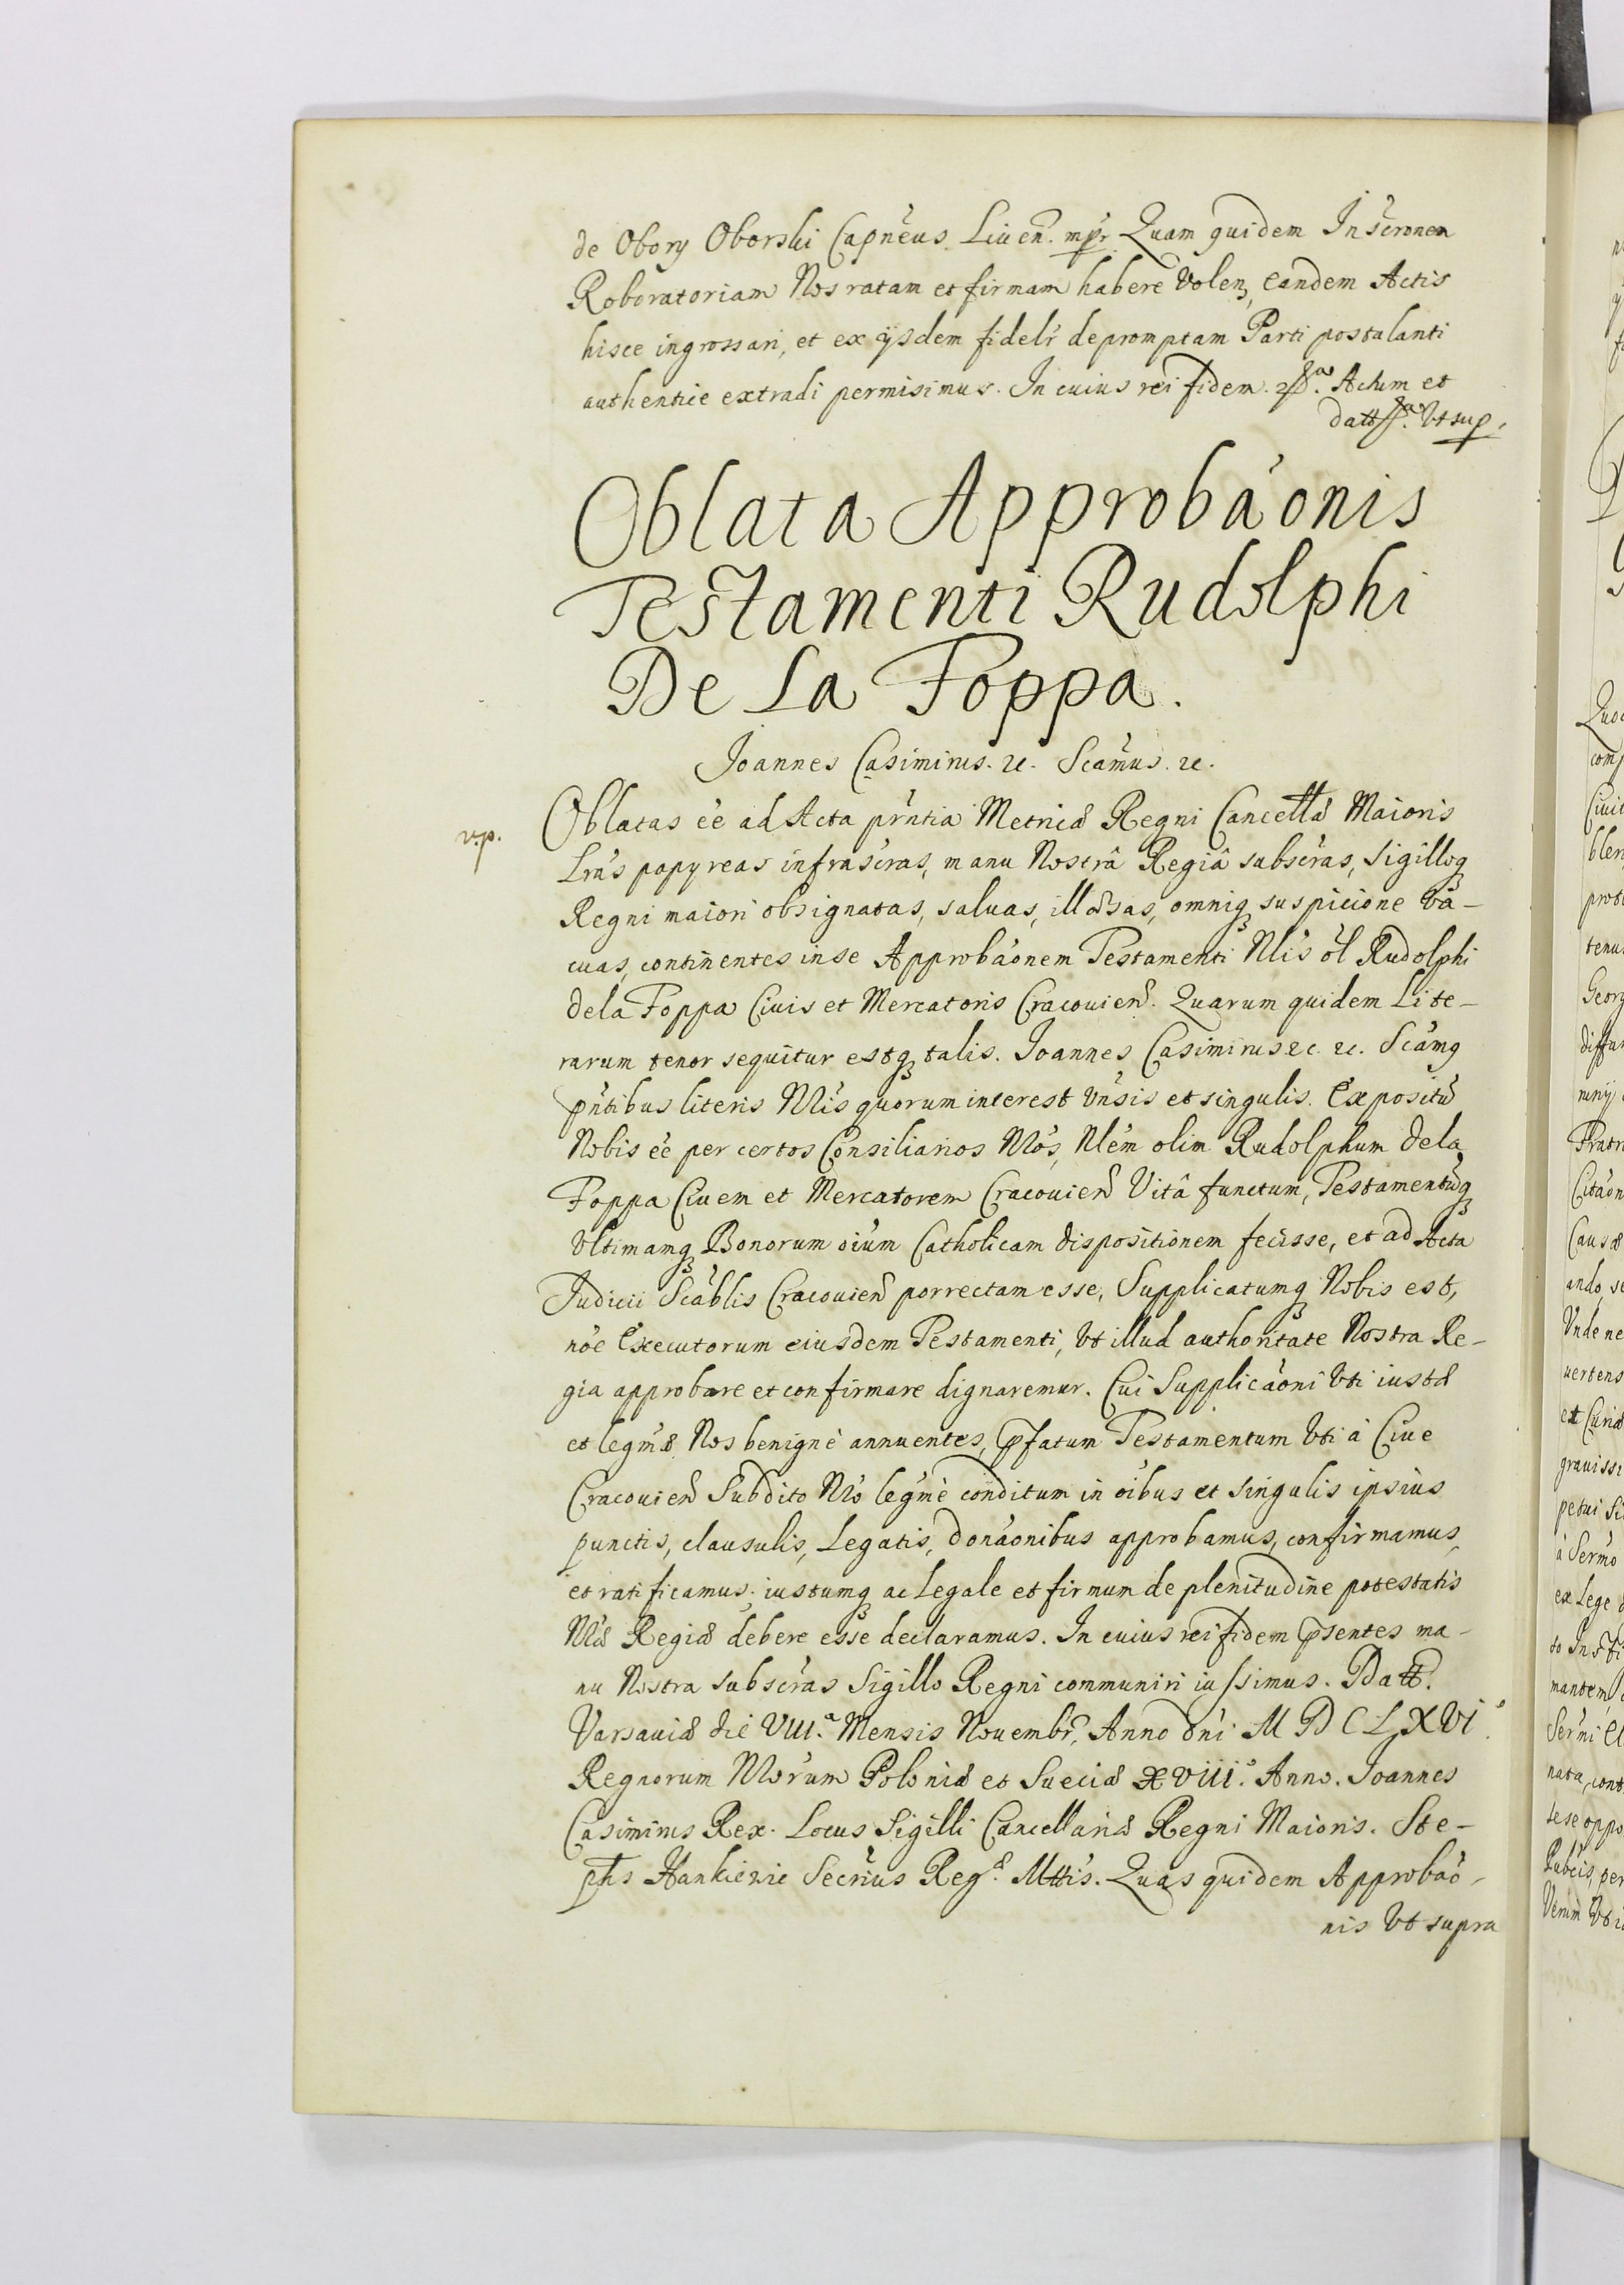 de Obory Oborski Capneus Liuen. mpr Quam quidem Inscronem
Roboratoriam Nos ratam et firmam habere Volen, eandem Actis
hisce ingrossari, et ex ijsdem fidelr depromptam Parti postulanti
authentice extradi permisimus. In cuius rei fidem. Actum et
datt Vt sup.
Oblata Approbaonis
Testamenti Rudolphi
De La Foppa.
Joannes Casimirus. &c. Scamus. &c.
v.p.
Oblatas eé ad Acta prntia Metricæ Regni Cancellæ Maioris
Lras papyreas infrascras, manu Nostrâ Regiâ subscras, Sigilloq
Regni maiori obsignatas, saluas, illæsas, omniq suspicione va-
cuas, continentes in se Approbaonem Testamenti Nlis ol Rudolphi
de la Foppa Ciuis et Mercatoris Cracouien. Quarum quidem Lite-
rarum tenor sequitur estq talis. Joannes Casimirus &c. &c. Scamq
pntibus literis Nris quorum interest Vnsis et singulis. Expositu
Nobis eé per certos Consiliarios Nros, Nlem olim Rudolphum de la
Foppa Ciuem et Mercatorem Cracouien Vitâ functum, Testamentuq
Vltimamq Bonorum oium Catholicam dispositionem fecisse, et ad Acta
Judicii Scablis Cracouien porrectam esse, Supplicatumq Nobis est,
noe Executorum eiusdem Testamenti, Vt illud authoritate Nostra Re-
gia approbare et confirmare dignaremur. Cui Supplicaoni Vti iustæ
et legmæ Nos benignè annuentes, pfatum Testamentum Vti à Ciue
Cracouien Subdito Nro legmè conditum in oibus et singulis ipsius
punctis, clausulis, Legatis, donaonibus approbamus, confirmamus,
et ratificamus; iustumq ac Legale et firmum de plenitudine potestatis
Nræ Regiæ debere esse declaramus. In cuius rei fidem psentes ma-
nu Nostra subscras Sigillo Regni communiri iussimus. Datt.
Varsauiæ die VIII.a Mensis Nouembr, Anno dni MDCLXVI.o
Regnorum Nrorum Poloniæ et Sueciæ XVIII.o Anno. Joannes
Casimirus Rex. Locus Sigilli Cancellariæ Regni Maioris. Ste-
phs Hankiewic Secrius Reg. Mttis. Quas quidem Approbao-
nis Vt supra